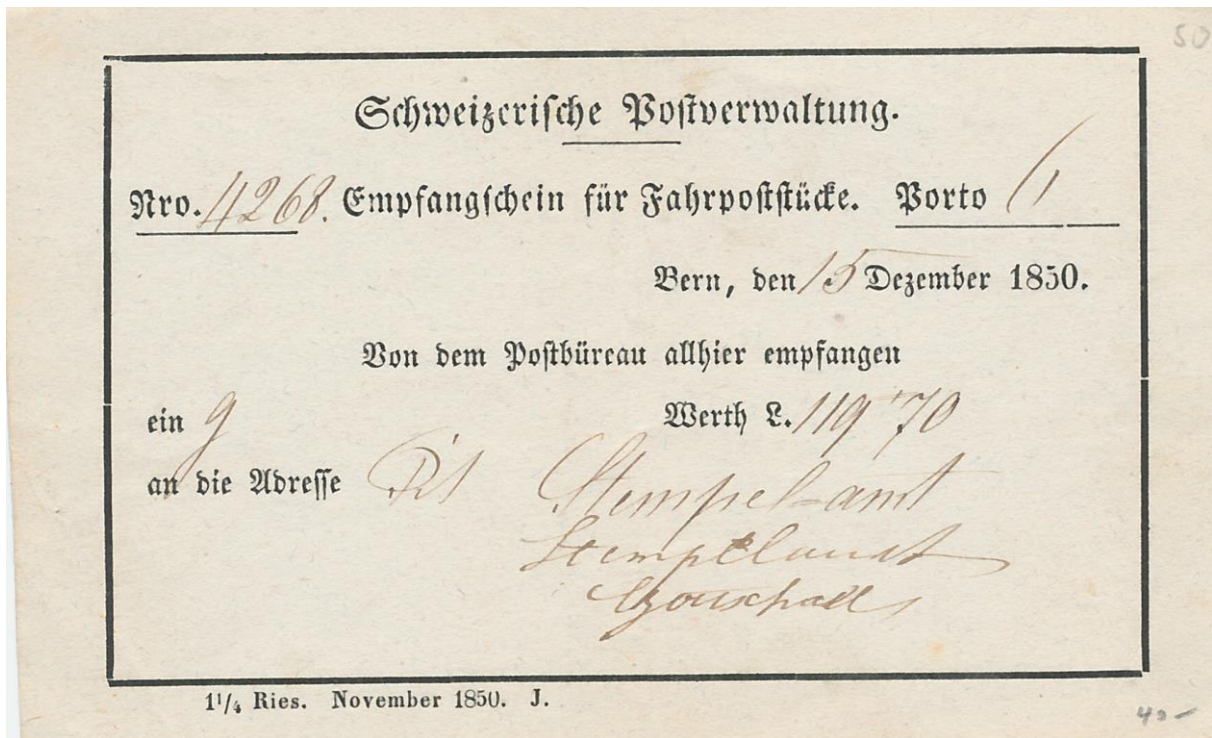 50
Schweizerische Postverwaltung.
Nro. 4268. Empfangschein für Fahrpoststücke. Porto
Bern, den 15 Dezember 1850.
Von dem Postbüreau allhier empfangen
ein g Werth L. 119 70
an die Adresse Tit Stempel-amt
Stempelamt
1¼ Ries. November 1850. J.
40-